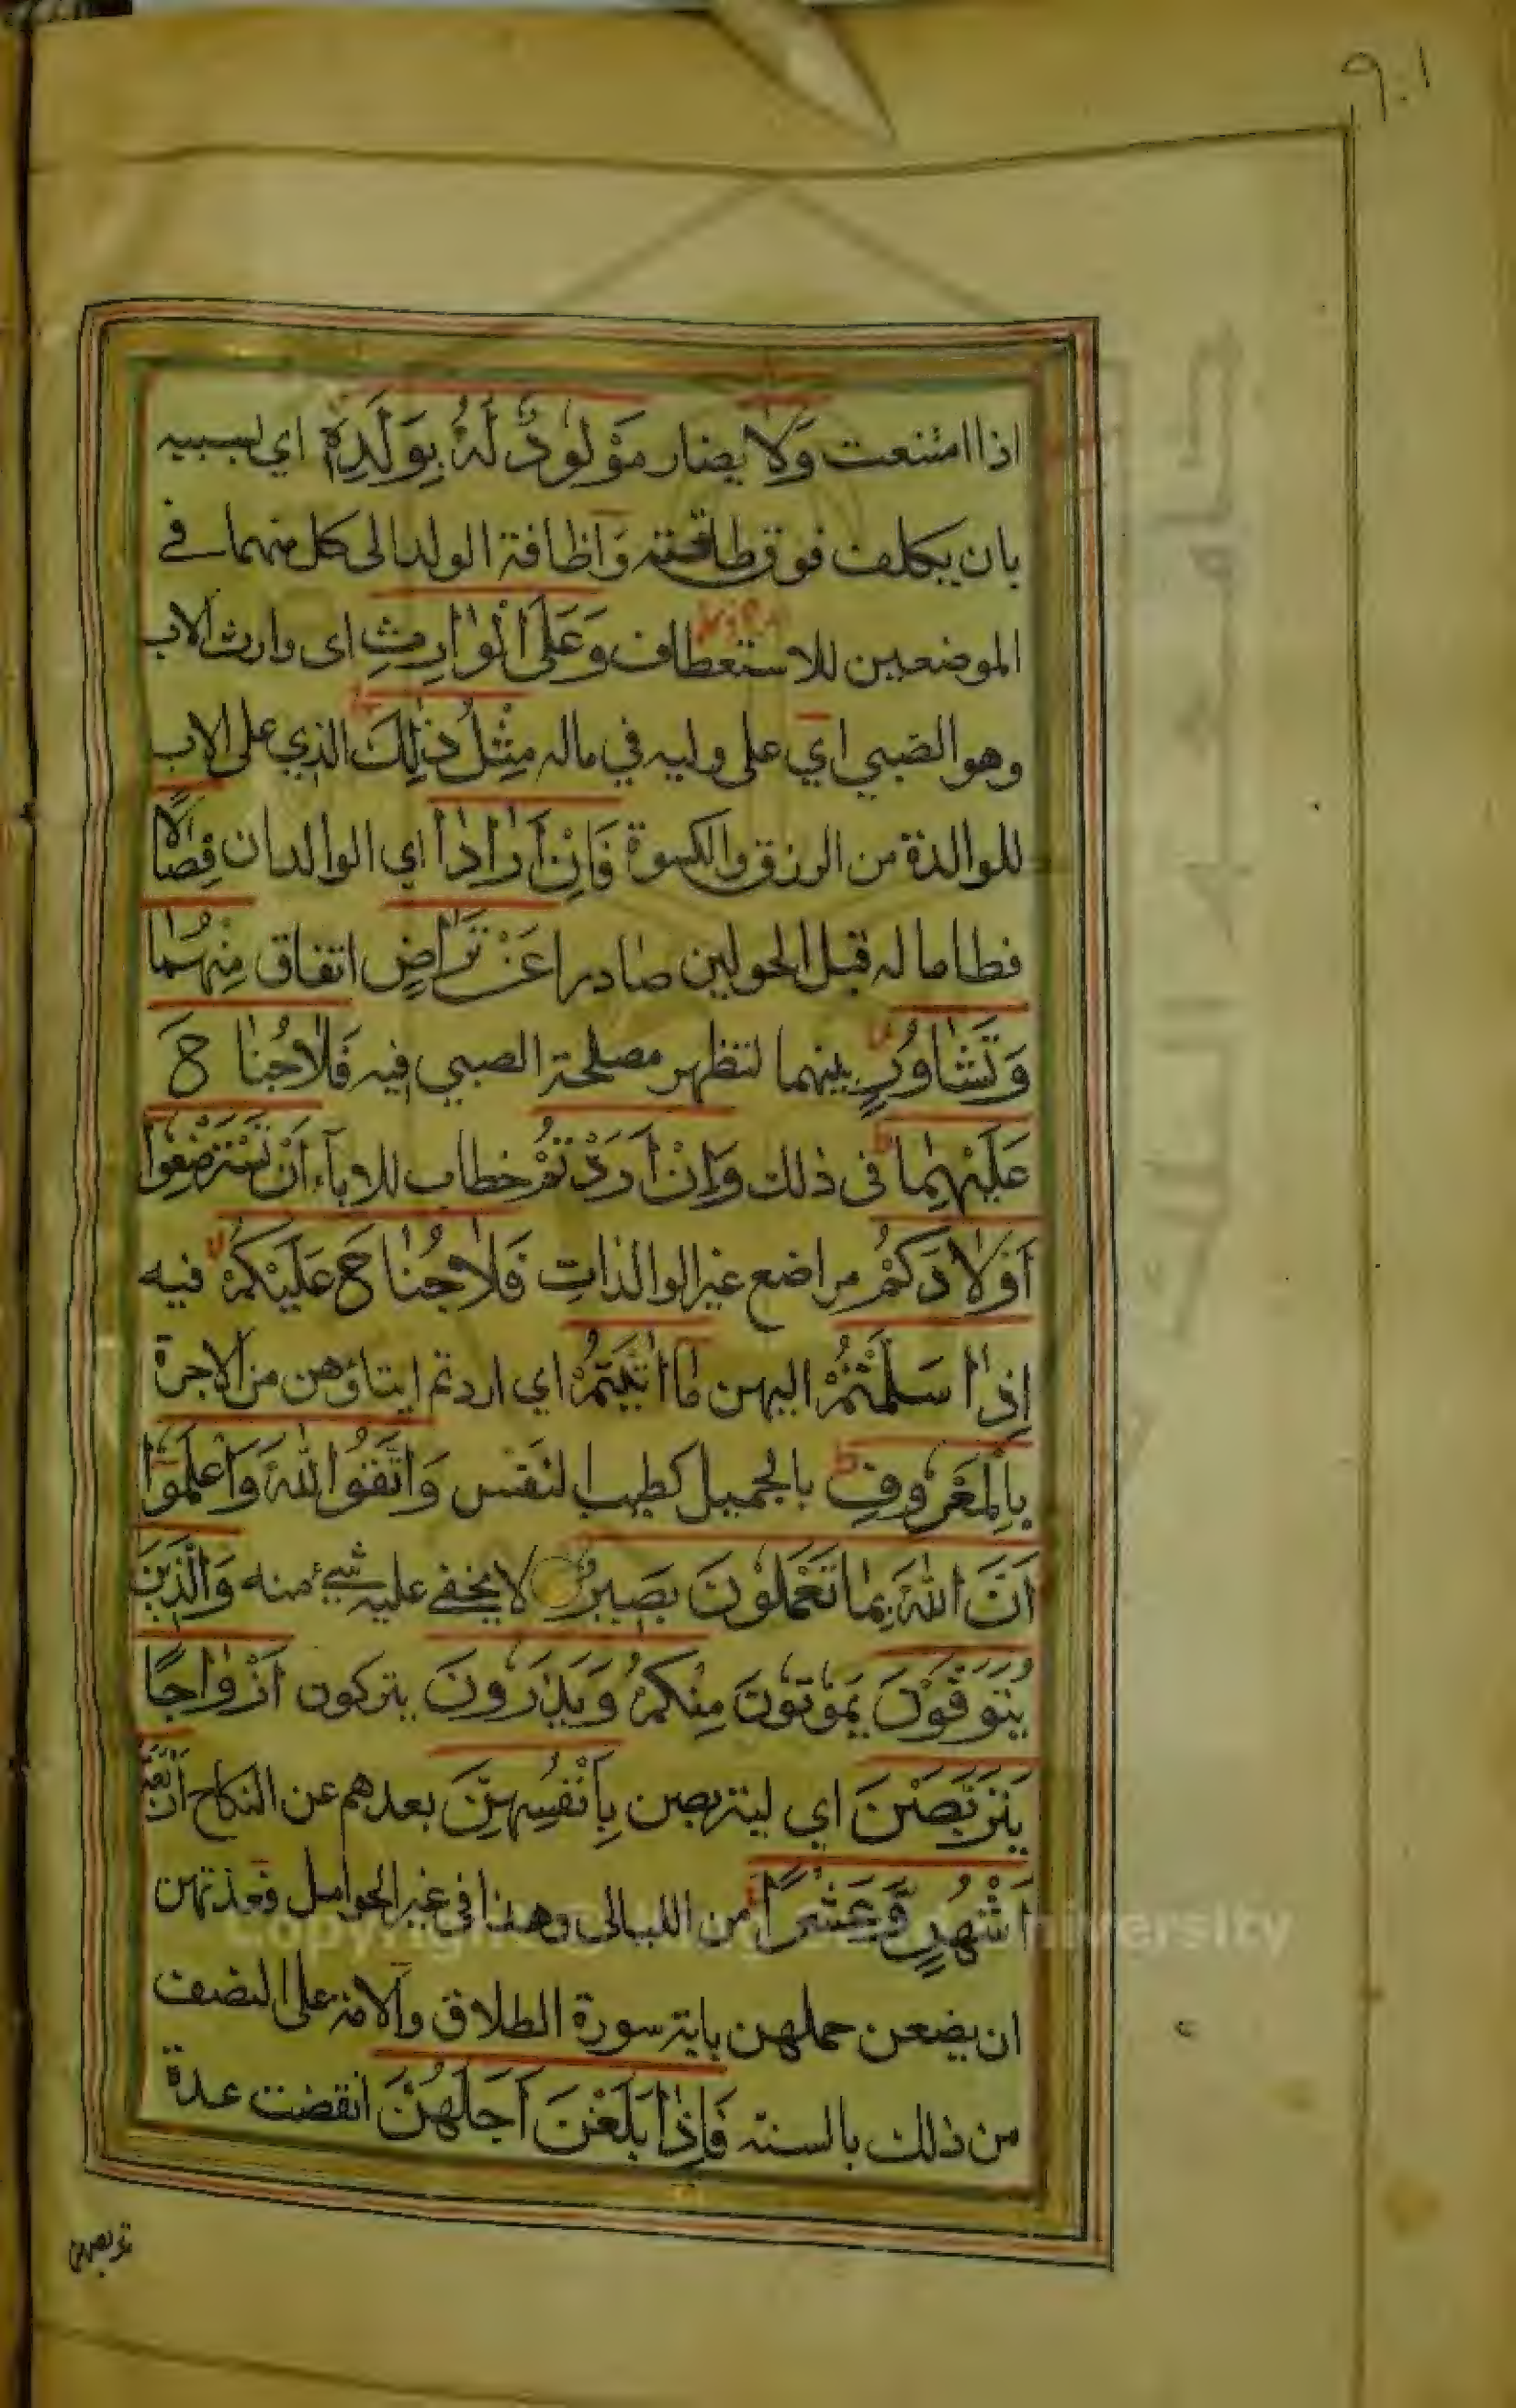 ٩٠١
اذا امتنعت وَلَا يضار مَوْلُودٌ لَهُ بِوَلَدِهٖ اي بسببه
بان يكلف فوق طاقته وَاظافة الولد الى كل منهما في
الموضعين للاستعطاف وَعَلَى الْوَارِثِ اى وارث الاب
وهو الصبي اي على وليه في ماله مِثْلُ ذٰلِكَ الذي على الاب
للوالدة من الرزق والكسوة فَاِنْ اَرَادَا اي الوالدان فِصَالًا
فطاما له قبل الحولين صادرا عَنْ تَرَاضٍ اتفاق مِنْهُمَا
وَتَشَاوُرٍ بينهما لتظهر مصلحة الصبي فيه فَلَا جُنَاحَ
عَلَيْهِمَا فى ذلك وَاِنْ اَرَدْتُمْ خطاب للاباء اَنْ تَسْتَرْضِعُوا
اَوْلَادَكُمْ مراضع غير الوالدات فَلَا جُنَاحَ عَلَيْكُمْ فيه
اِذَا سَلَّمْتُمْ اليهن مَا اٰتَيْتُمْ اي اردتم ايتاؤهن من الاجرة
بِالْمَعْرُوفِ بالجميل كطيب النفس وَاتَّقُوا اللهَ وَاعْلَمُوا
اَنَّ اللهَ بِمَا تَعْمَلُونَ بَصِيرٌ لا يخفى عليه شيئ منه وَالَّذِينَ
يُتَوَفَّوْنَ يَمُوتُونَ مِنْكُمْ وَيَذَرُونَ يتركون اَزْوَاجًا
يَتَرَبَّصْنَ اي ليتربصن بِاَنْفُسِهِنَّ بعدهم عن النكاح اَرْبَعَةَ
اَشْهُرٍ وَّعَشْرًا من الليالى وهذا في غير الحوامل فعدتهن
ان يضعن حملهن باية سورة الطلاق والامة على النصف
من ذلك بالسنة فَاِذَا بَلَغْنَ اَجَلَهُنَّ انقضت عدة
تربصهن